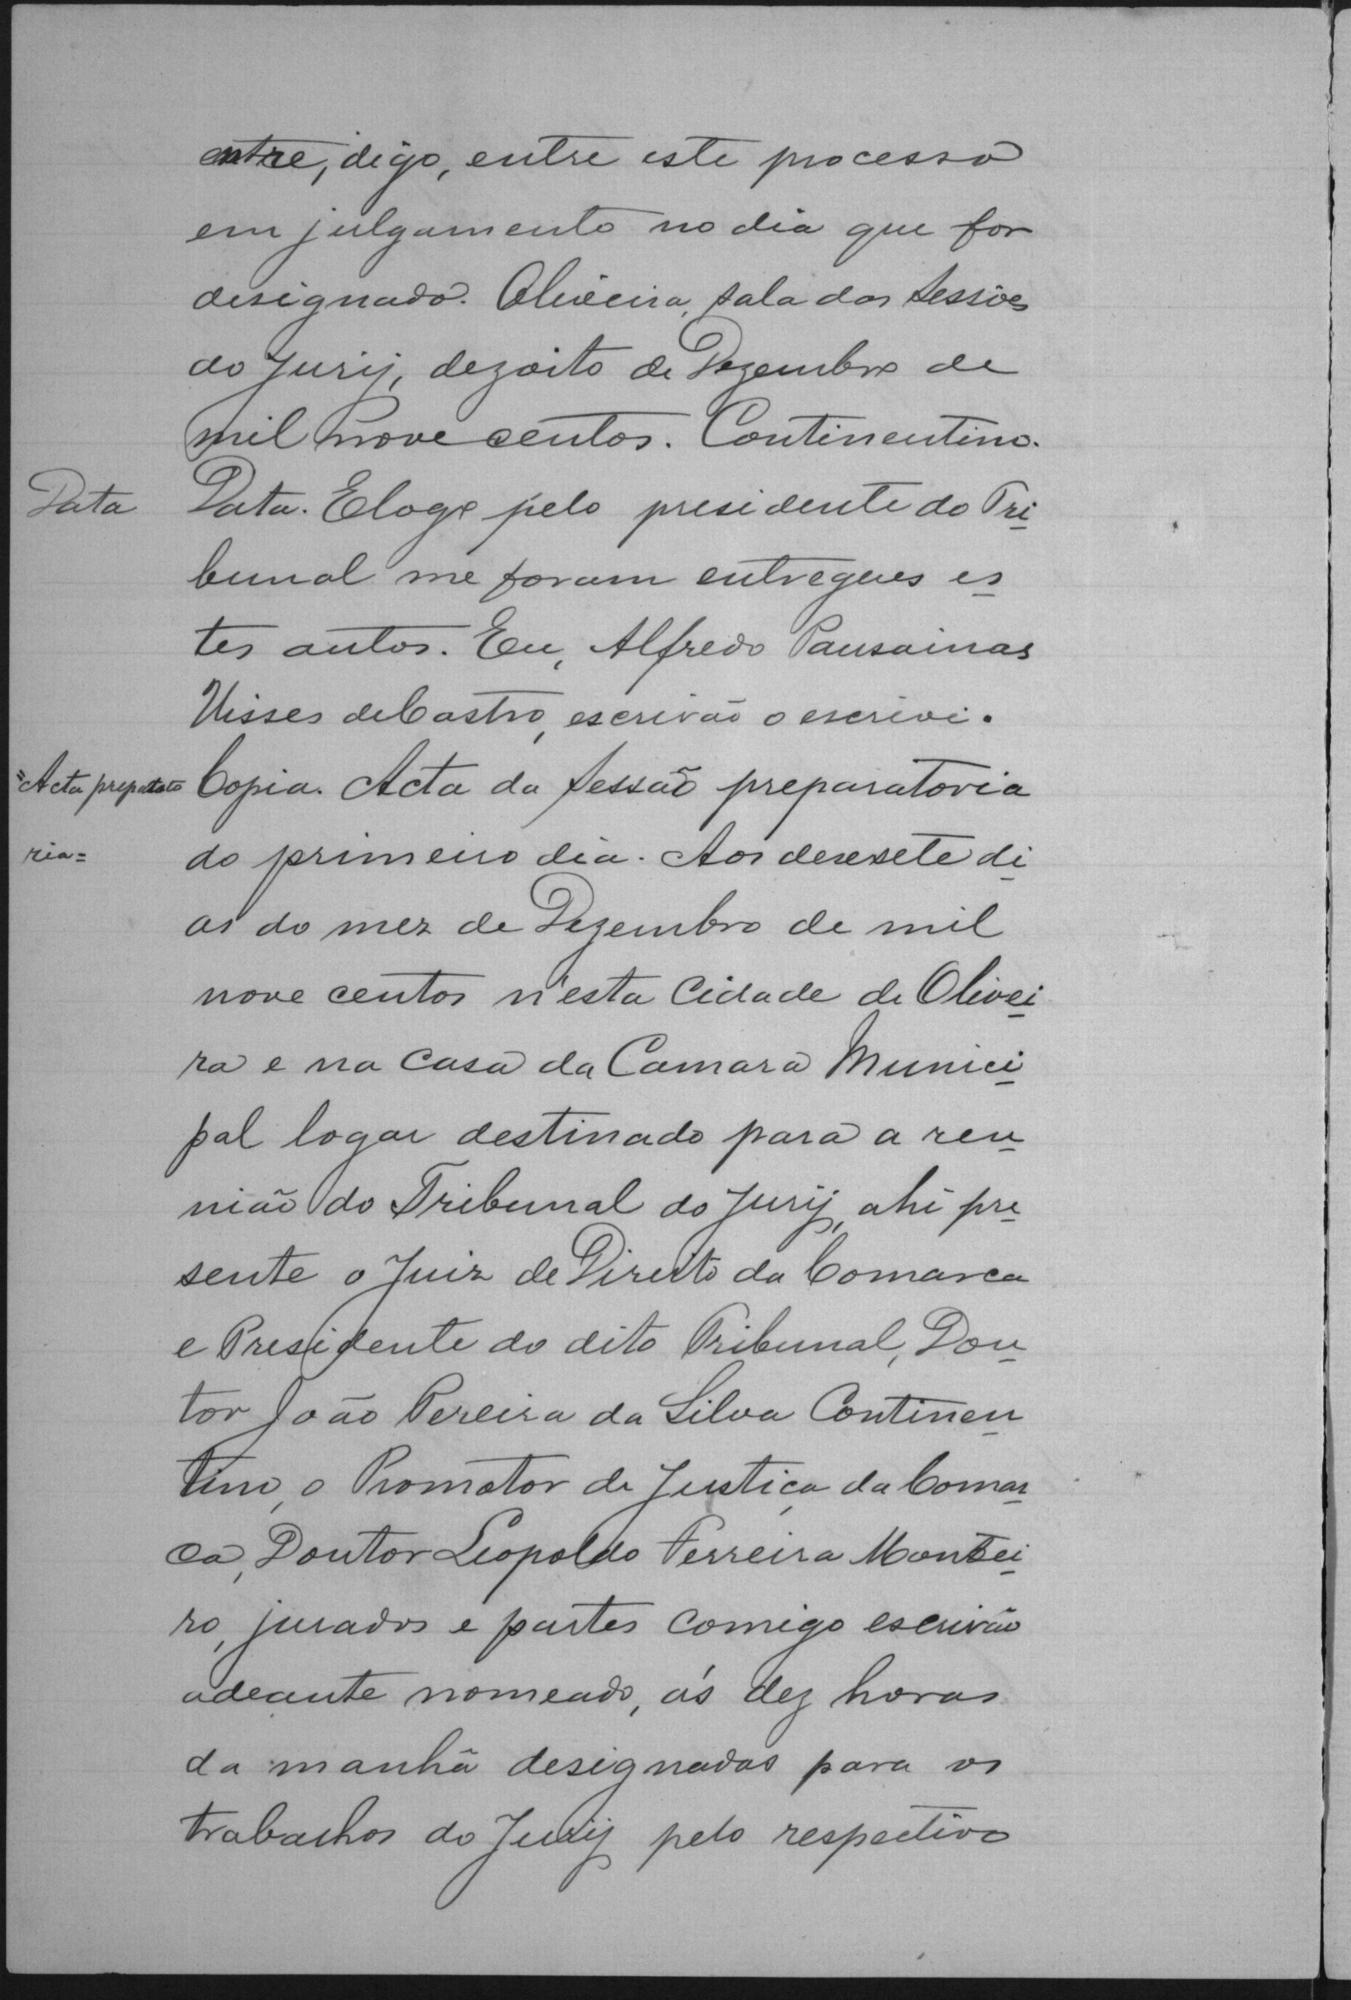 entre, digo, entre este processo
em julgamento no dia que for
designado. Oliveira, sala das sessões
do Jury, dezoito de Dezembro de
mil nove centos. Continentino.
Data
Data. E logo pelo presidente do Tri
bunal me foram entregues es
tes autos. Eu, Alfredo Pausainas
Ulisses de Castro, escrivão o escrevi.
=Acta preparato
ria=
Copia. Acta da sessão preparatoria
do primeiro dia. Aos desesete di
as do mez de Dezembro de mil
nove centos n'esta cidade de Olivei
ra e na casa da Camara Munici
pal logar destinado para a reu
nião do Tribunal do Jury, ahi pre
sente o Juiz de Direito da Comarca
e Presidente do dito Tribunal, Dou
tor João Pereira da Silva Continen
tino, o Promotor de Justiça da Comar
ca, Doutor Leopoldo Ferreira Montei
ro, jurados e partes comigo escrivão
adeante nomeado, ás dez horas
da manhã designadas para os
trabalhos do Jury pelo respectivo